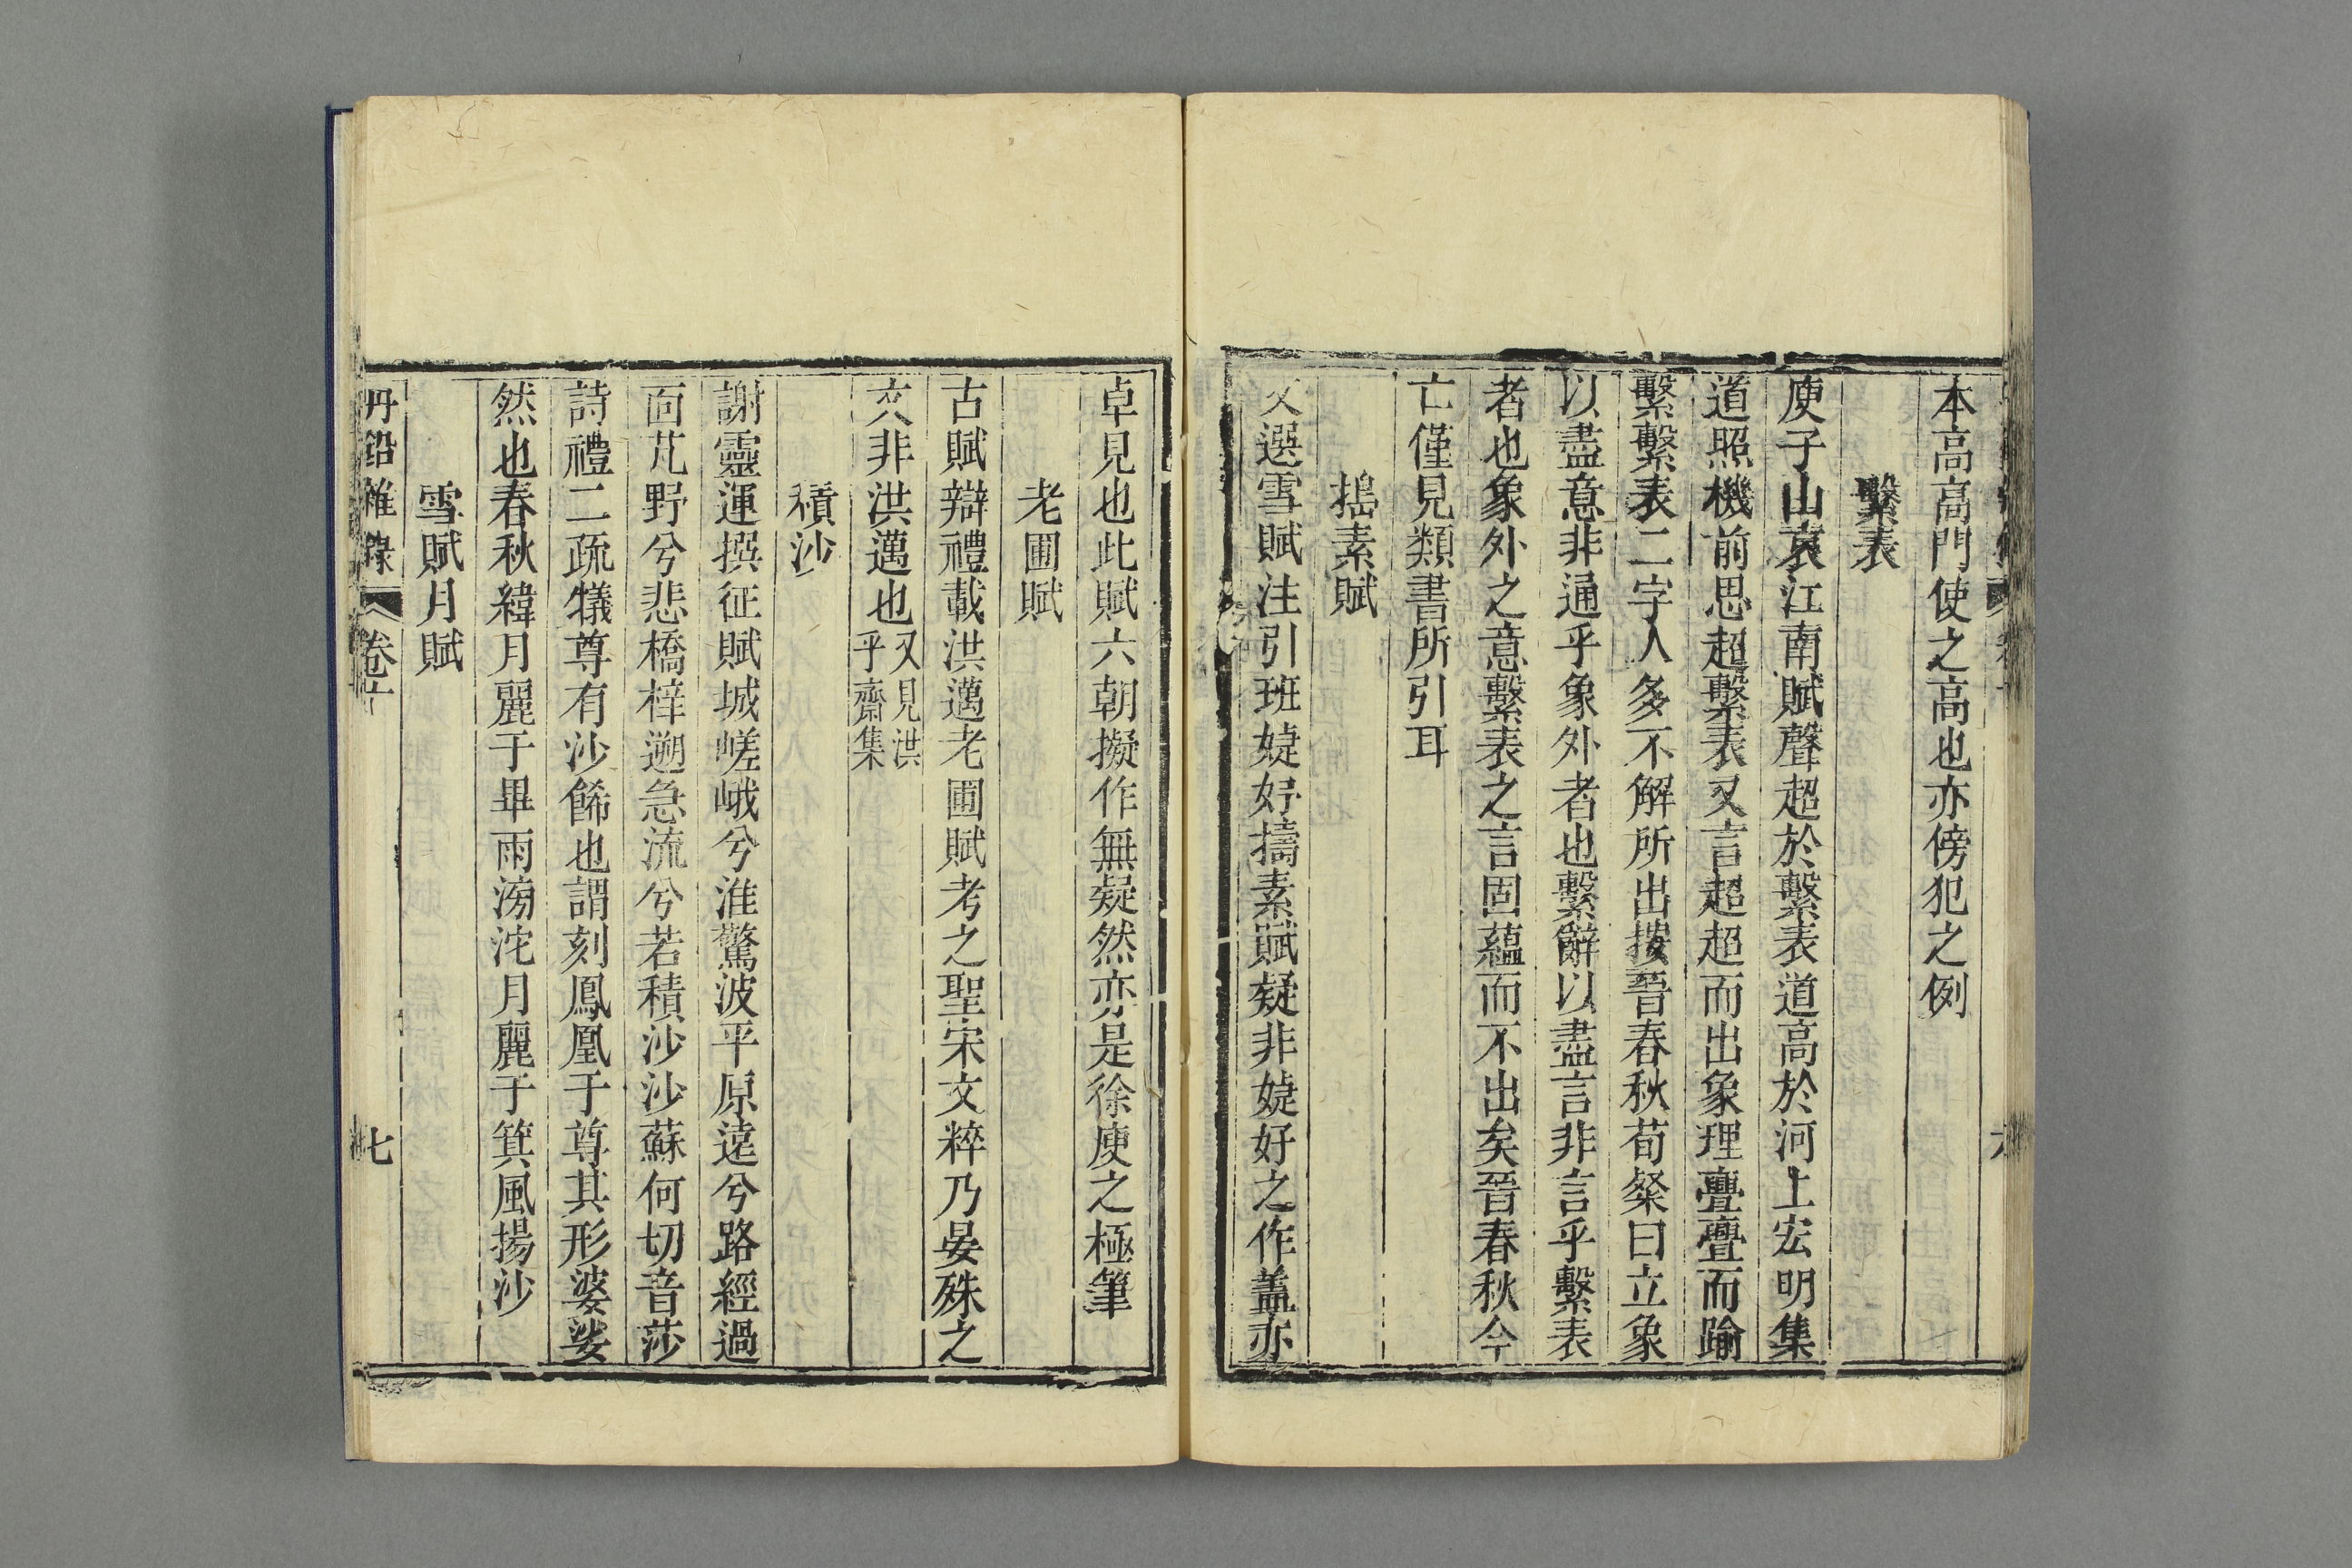 本高高門使之高也亦傍犯之例
繫表
庾子山哀江南賦聲超於繫表道高於河上宏明集
道照機前思超繫表又言超超而出象理亹亹而踰
繫繫表二字人多不解所出按晉春秋荀粲曰立象
以盡意非通乎象外者也繫辭以盡言非言乎繫表
者也象外之意繫表之言固蘊而不出矣晉春秋今
亡僅見類書所引耳
搗素賦
文選雪賦注引班婕妤擣素賦疑非婕妤之作蓋亦
卓見也此賦六朝擬作無疑然亦是徐庾之極筆
老圃賦
古賦辯禮載洪邁老圃賦考之聖宋文粹乃晏殊之
文非洪邁也又見洪
乎齋集
積沙
謝靈運撰征賦城嵯峨兮淮驚波平原遠兮路經過
面芃野兮悲橋梓遡急流兮若積沙沙蘇何切音莎
詩禮二疏犧尊有沙餙也謂刻鳳凰于尊其形婆娑
然也春秋緯月麗于畢雨滂沱月麗于箕風揚沙
雪賦月賦
丹鉛雜錄 卷十 七